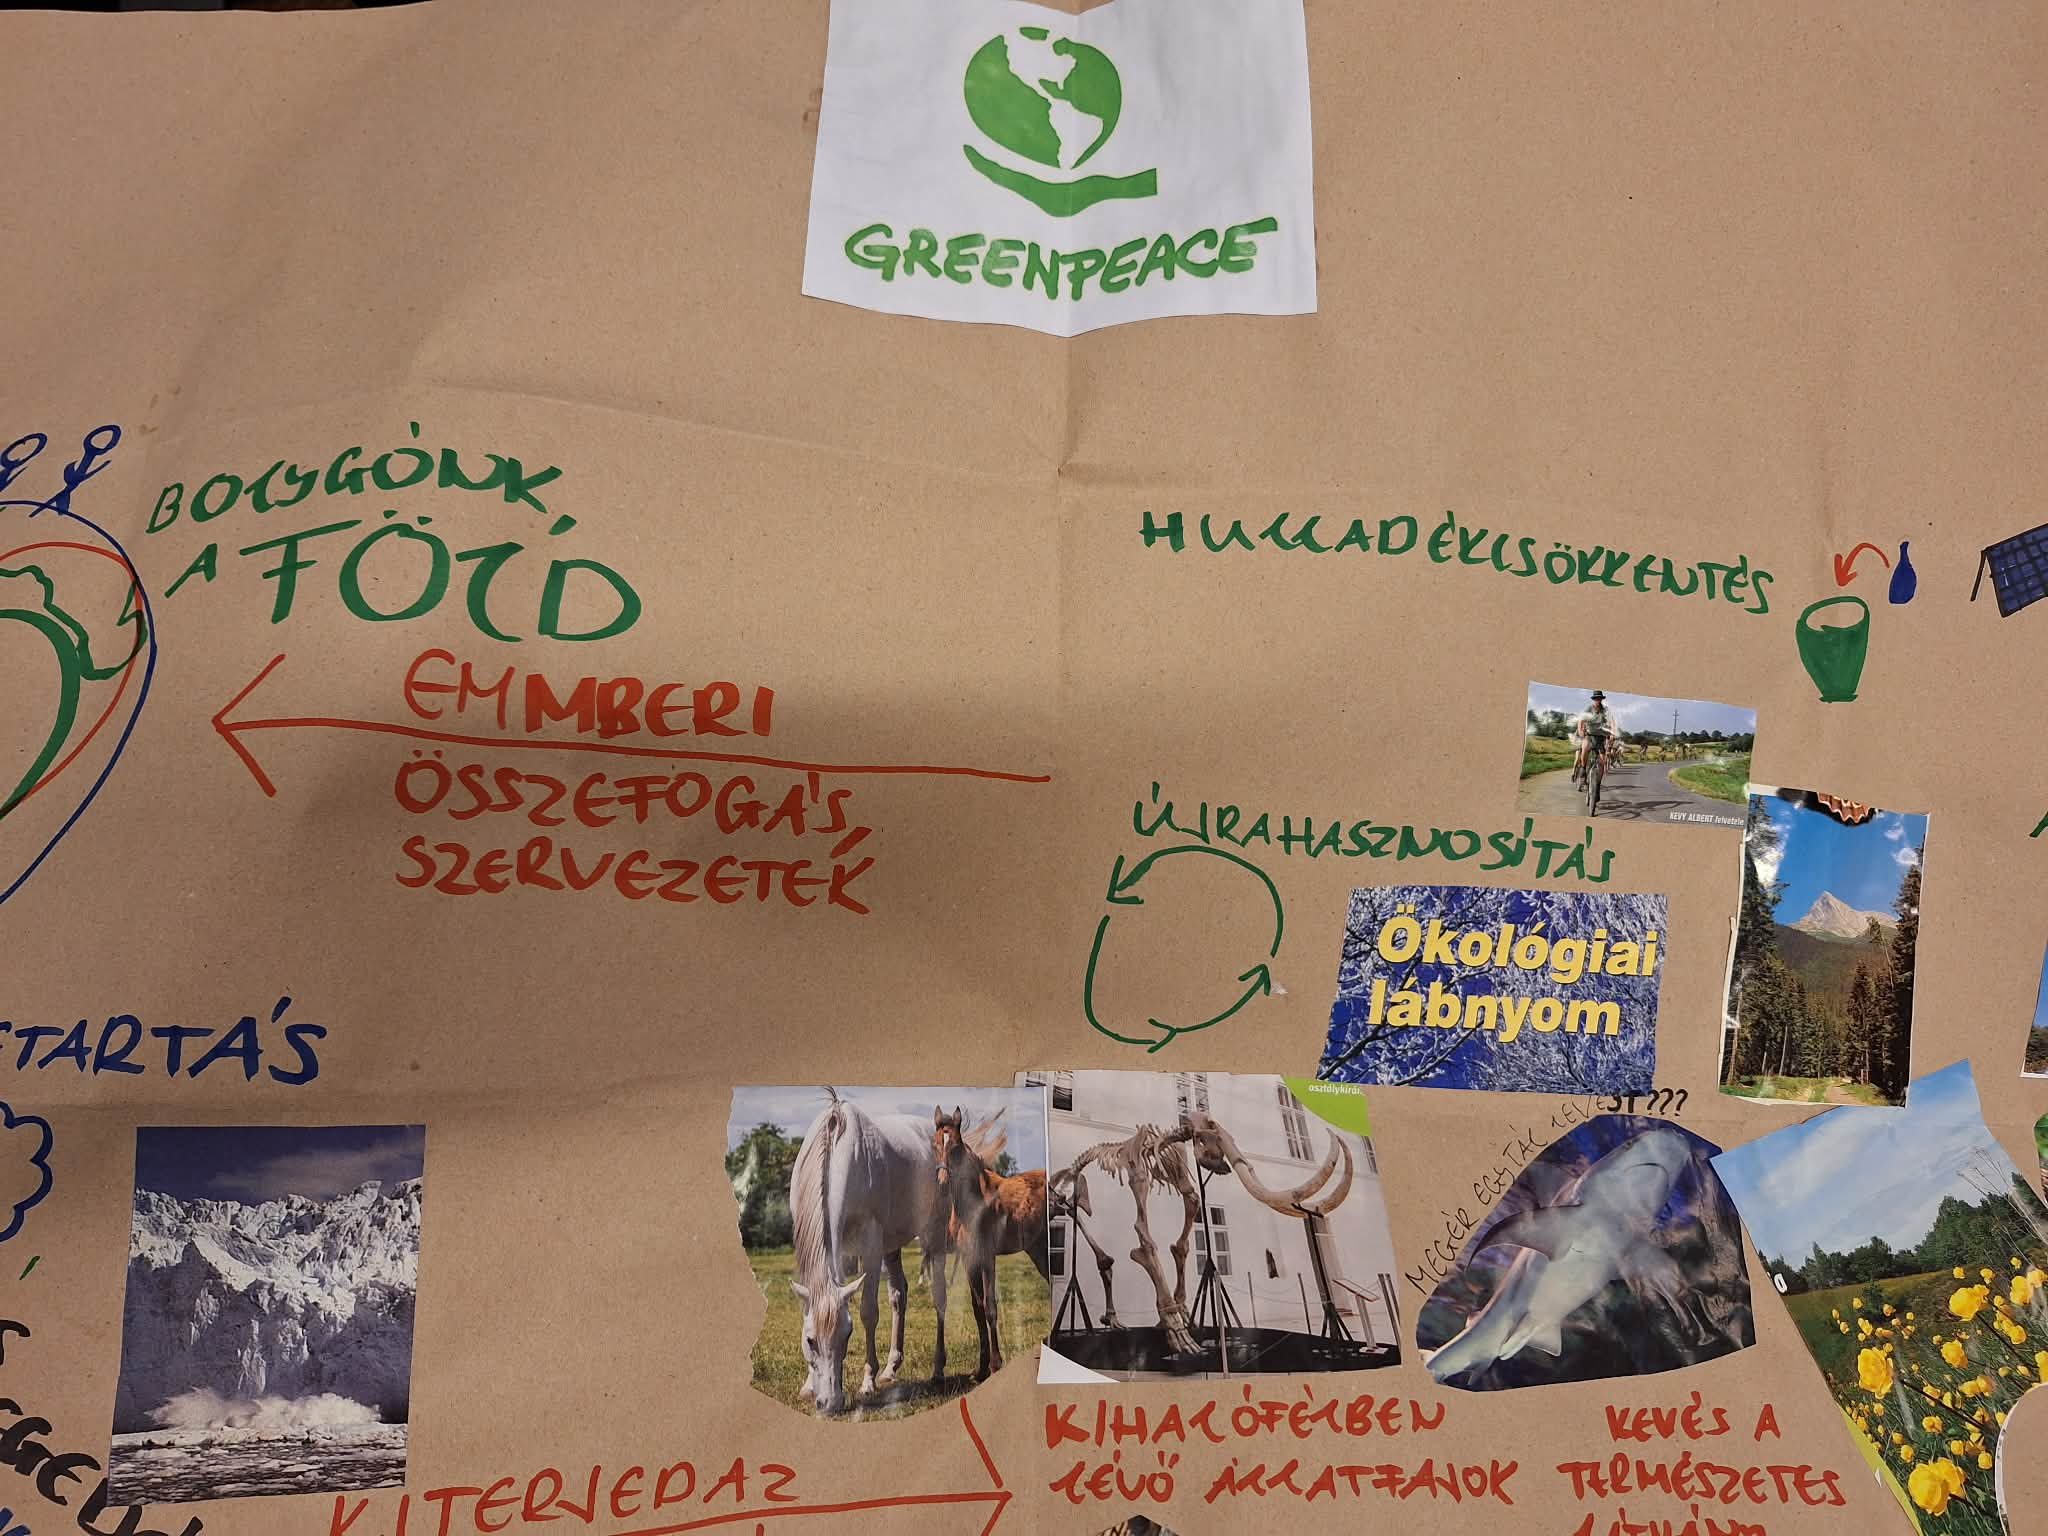 GREENPEACE
BOLYGÓNK,
A FÖLD
EMMBERI
ÖSSZEFOGÁS,
SZERVEZETEK
HULLADÉKCSÖKKENTÉS
KEVY ALBERT felvétele
ÚJRAHASZNOSÍTÁS
Ökológiai
lábnyom
ETARTÁS
osztálykirán
MEGÉR EGY TÁL LEVEST???
KIHALÓFÉLBEN
LÉVŐ ÁLLATFAJOK
KEVÉS A
TERMÉSZETES
KITERJED AZ